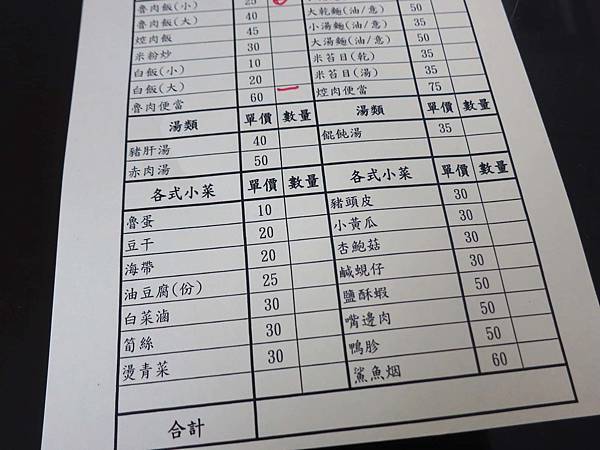 魯肉飯(小) 25
魯肉飯(大) 40 大乾麵(油/意) 50
焢肉飯 45 小湯麵(油/意) 35
米粉炒 30 大湯麵(油/意) 50
白飯(小) 10 米苔目(乾) 35
白飯(大) 20 一 米苔目(湯) 35
魯肉便當 60 焢肉便當 75
湯類 單價 數量 湯類 單價 數量
豬肝湯 40 餛飩湯 35
赤肉湯 50
各式小菜 單價 數量 各式小菜 單價 數量
魯蛋 10 豬頭皮 30
豆干 20 小黃瓜 30
海帶 20 杏鮑菇 30
油豆腐(份) 25 鹹蜆仔 30
白菜滷 30 鹽酥蝦 50
筍絲 30 嘴邊肉 50
燙青菜 30 鴨胗 50
鯊魚烟 60
合計